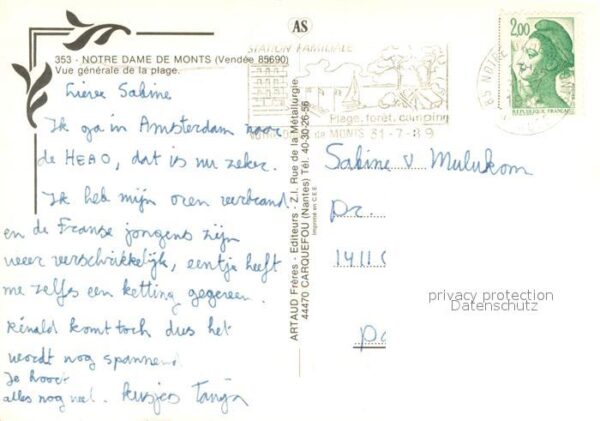 AS
353 - NOTRE DAME DE MONTS (Vendée 85690)
Vue générale de la plage.
Lieve Sabine
Ik ga in Amsterdam naar
de HEAO, dat is nu zeker.
Ik heb mijn oren verbrand
en de Franse jongens zijn
weer verschrikkelijk, eentje heeft
me zelfs een ketting gegeven.
Rénald komt toch dus het
wordt nog spannend.
Je hoort
alles nog wel. kusjes Tanja
ARTAUD Frères - Editeurs - Z.I. Rue de la Métallurgie
44470 CARQUEFOU (Nantes) Tél. 40-30-26-56
Imprimé en C.E.E.
STATION FAMILIALE
Plage, forêt, camping
de MONTS 31-7-89
85 NOTRE
2,00
REPUBLIQUE FRANÇAISE
Sabine v Mulukom
Dr.
1411
privacy protection
Datenschutz